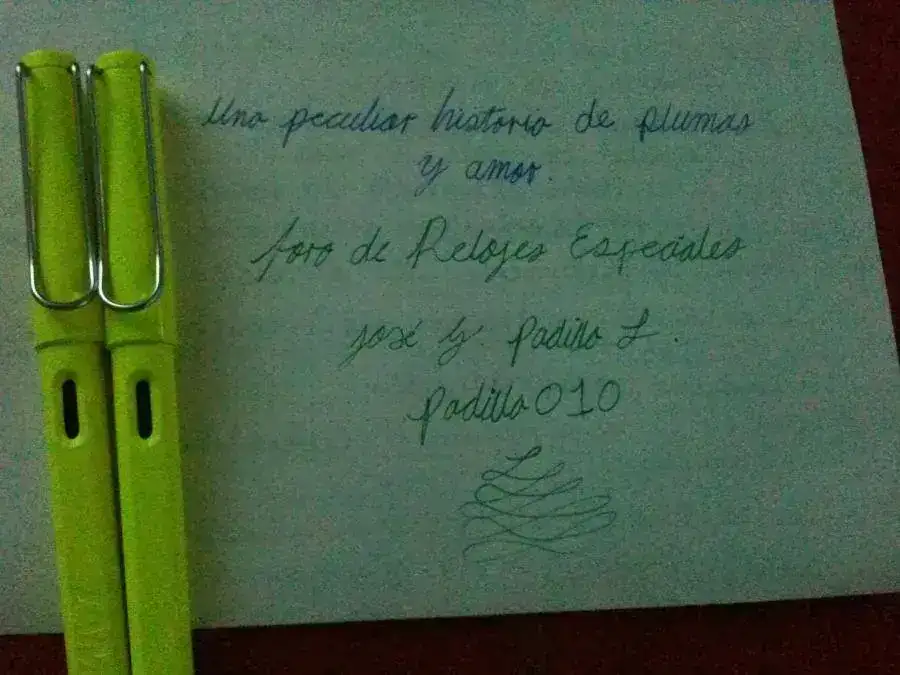 Una peculiar historia de plumas
y amor.
foro de Relojes Especiales
josé G Padilla L.
padilla010